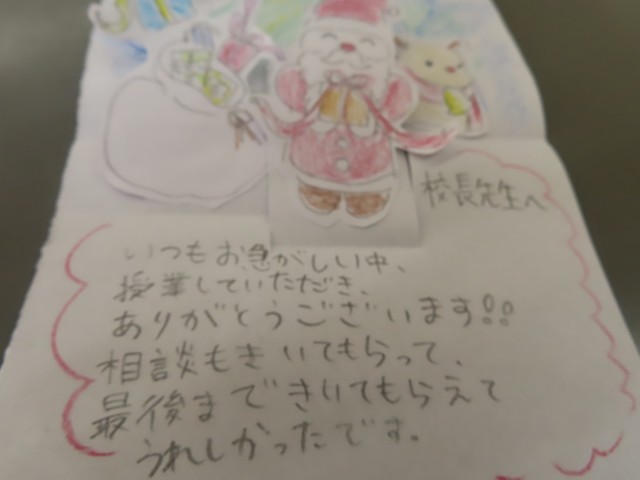 校長先生へ
いつもお急がしい中、
授業していただき、
ありがとうございます!!
相談もきいてもらって、
最後まできいてもらえて
うれしかったです。